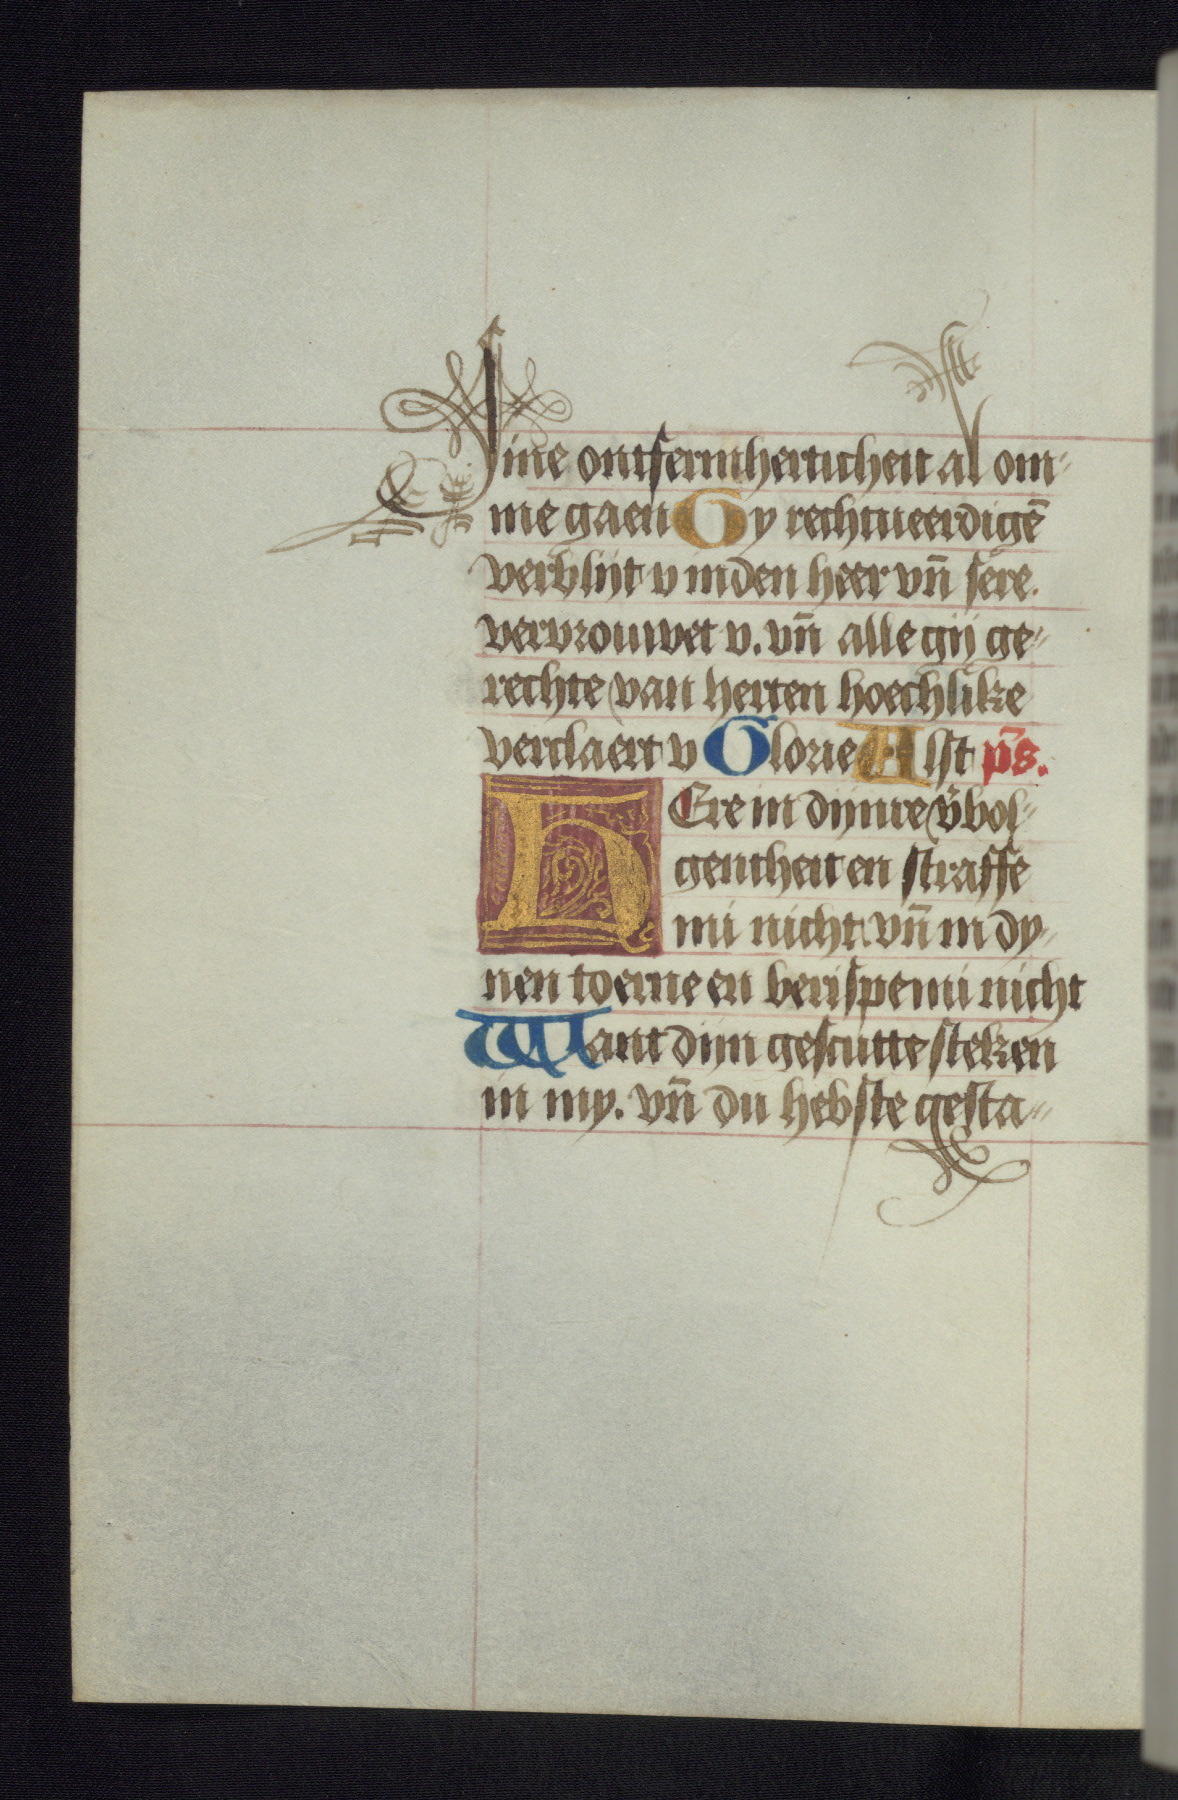 sine ontfermherticheit al om-
me gaen Gy rechtueerdigē
verblijt v in den heer vn̄ sere.
vervrouwet v. vn̄ alle gij ge-
rechte van herten hoechlike
verclaert v Glorie Alst ps̄.
HEre in dijnre v̄bol-
gentheit en straffe
mi nicht. vn̄ in dy-
nen toerne en berispe mi nicht
Want dijn gescutte steken
in my. vn̄ du hebste gesta-